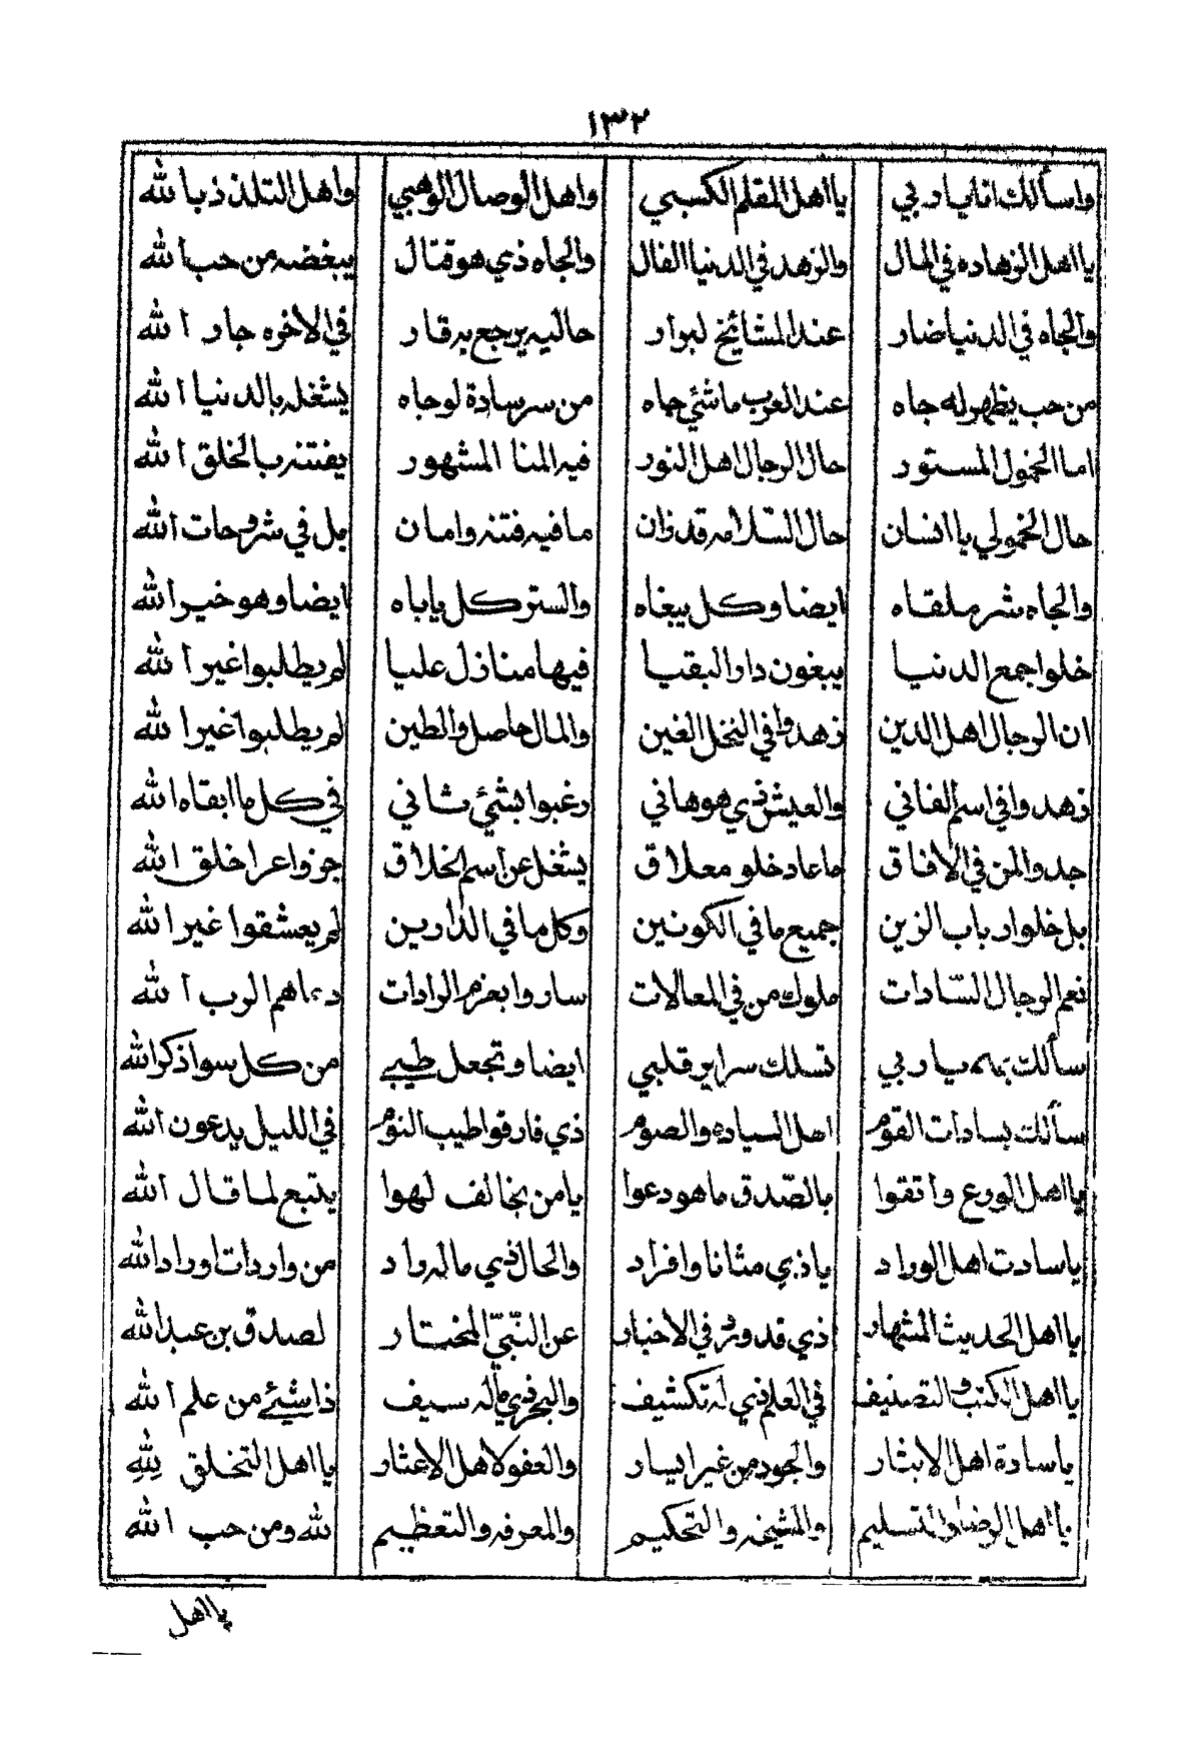 ١٣٢
واسألك انا يا ربي يا اهل المقلم الكسبي واهل الوصال الوهبي واهل التلذذ بالله
يا اهل الزهاده في المال والزهد في الدنيا الفال والجاه ذي هو قتال يبغضه من حب الله
والجاه في الدنيا ضار عند المشائخ لبوار حاليه يرجع به قار في الاخره جار الله
من حب يظهر له جاه عند العرب ما شئي جاه من سر سادة لوجاه يشغله بالدنيا الله
اما الخمول المستور حال الرجال اهل النور فيه المنا المشهور يفتنه بالخلق الله
حال الخمولي يا انسان حال السّلامه قد زان ما فيه فتنه وامان بل في شروحات الله
والجاه شر ملقاه ايضا وكل يبغاه والستر كل ياباه ايضا وهو خير الله
خلوا جمع الدنيا يبغون دار البقيا فيها منازل عليا لم يطلبوا غير الله
ان الرجال اهل الدين زهدوا في النخل الغين والمال حاصل والطين لم يطلبوا غير الله
زهدوا في اسم الفاني والعيش ذي هو هاني رغبوا بشئي ثاني في كل ما ابقاه الله
جدوا لمن في الافاق ما عاد خلو معلاق يشغل عن اسم الخلاق جزوا عرا خلق الله
بل خلوا رباب الزين جميع ما في الكونين وكل ما في الدارين لم يعشقوا غير الله
نعم الرجال السّادات ملوك من في المعالات ساروا بعزم الرادات دعاهم الرب الله
سألك بهم يا ربي تسلك سراير قلبي ايضا وتجعل طيبي من كل سوا ذكر الله
سألك بسادات القوم اهل السياده والصوم ذي فارقوا طيب النوم في الليل يدعون الله
يا اهل الورع واتقوا بالصّدق ما هو دعوا يا من يخالف لهوا يتبع لما قال الله
يا سادت اهل الوراد يا ذي مثانا وافراد والحال ذي ماله راد من واردات اوراد الله
يا اهل الحديث المشهار ذي قد ورد في الاخبار عن النّبيّ المختار لصدق بن عبد الله
يا اهل الكتب والتصنيف في العلم ذي له تكشيف والبحر ذي ماله سيف ذا شيئي من علم الله
يا سادة اهل الايثار والجود من غير ايسار والعفو لاهل الاعثار يا اهل التخلق لله
يا اهل الرضا والتسليم والمشيخه والتحكيم والمعرفه والتعظيم لله ومن حب الله
يا اهل